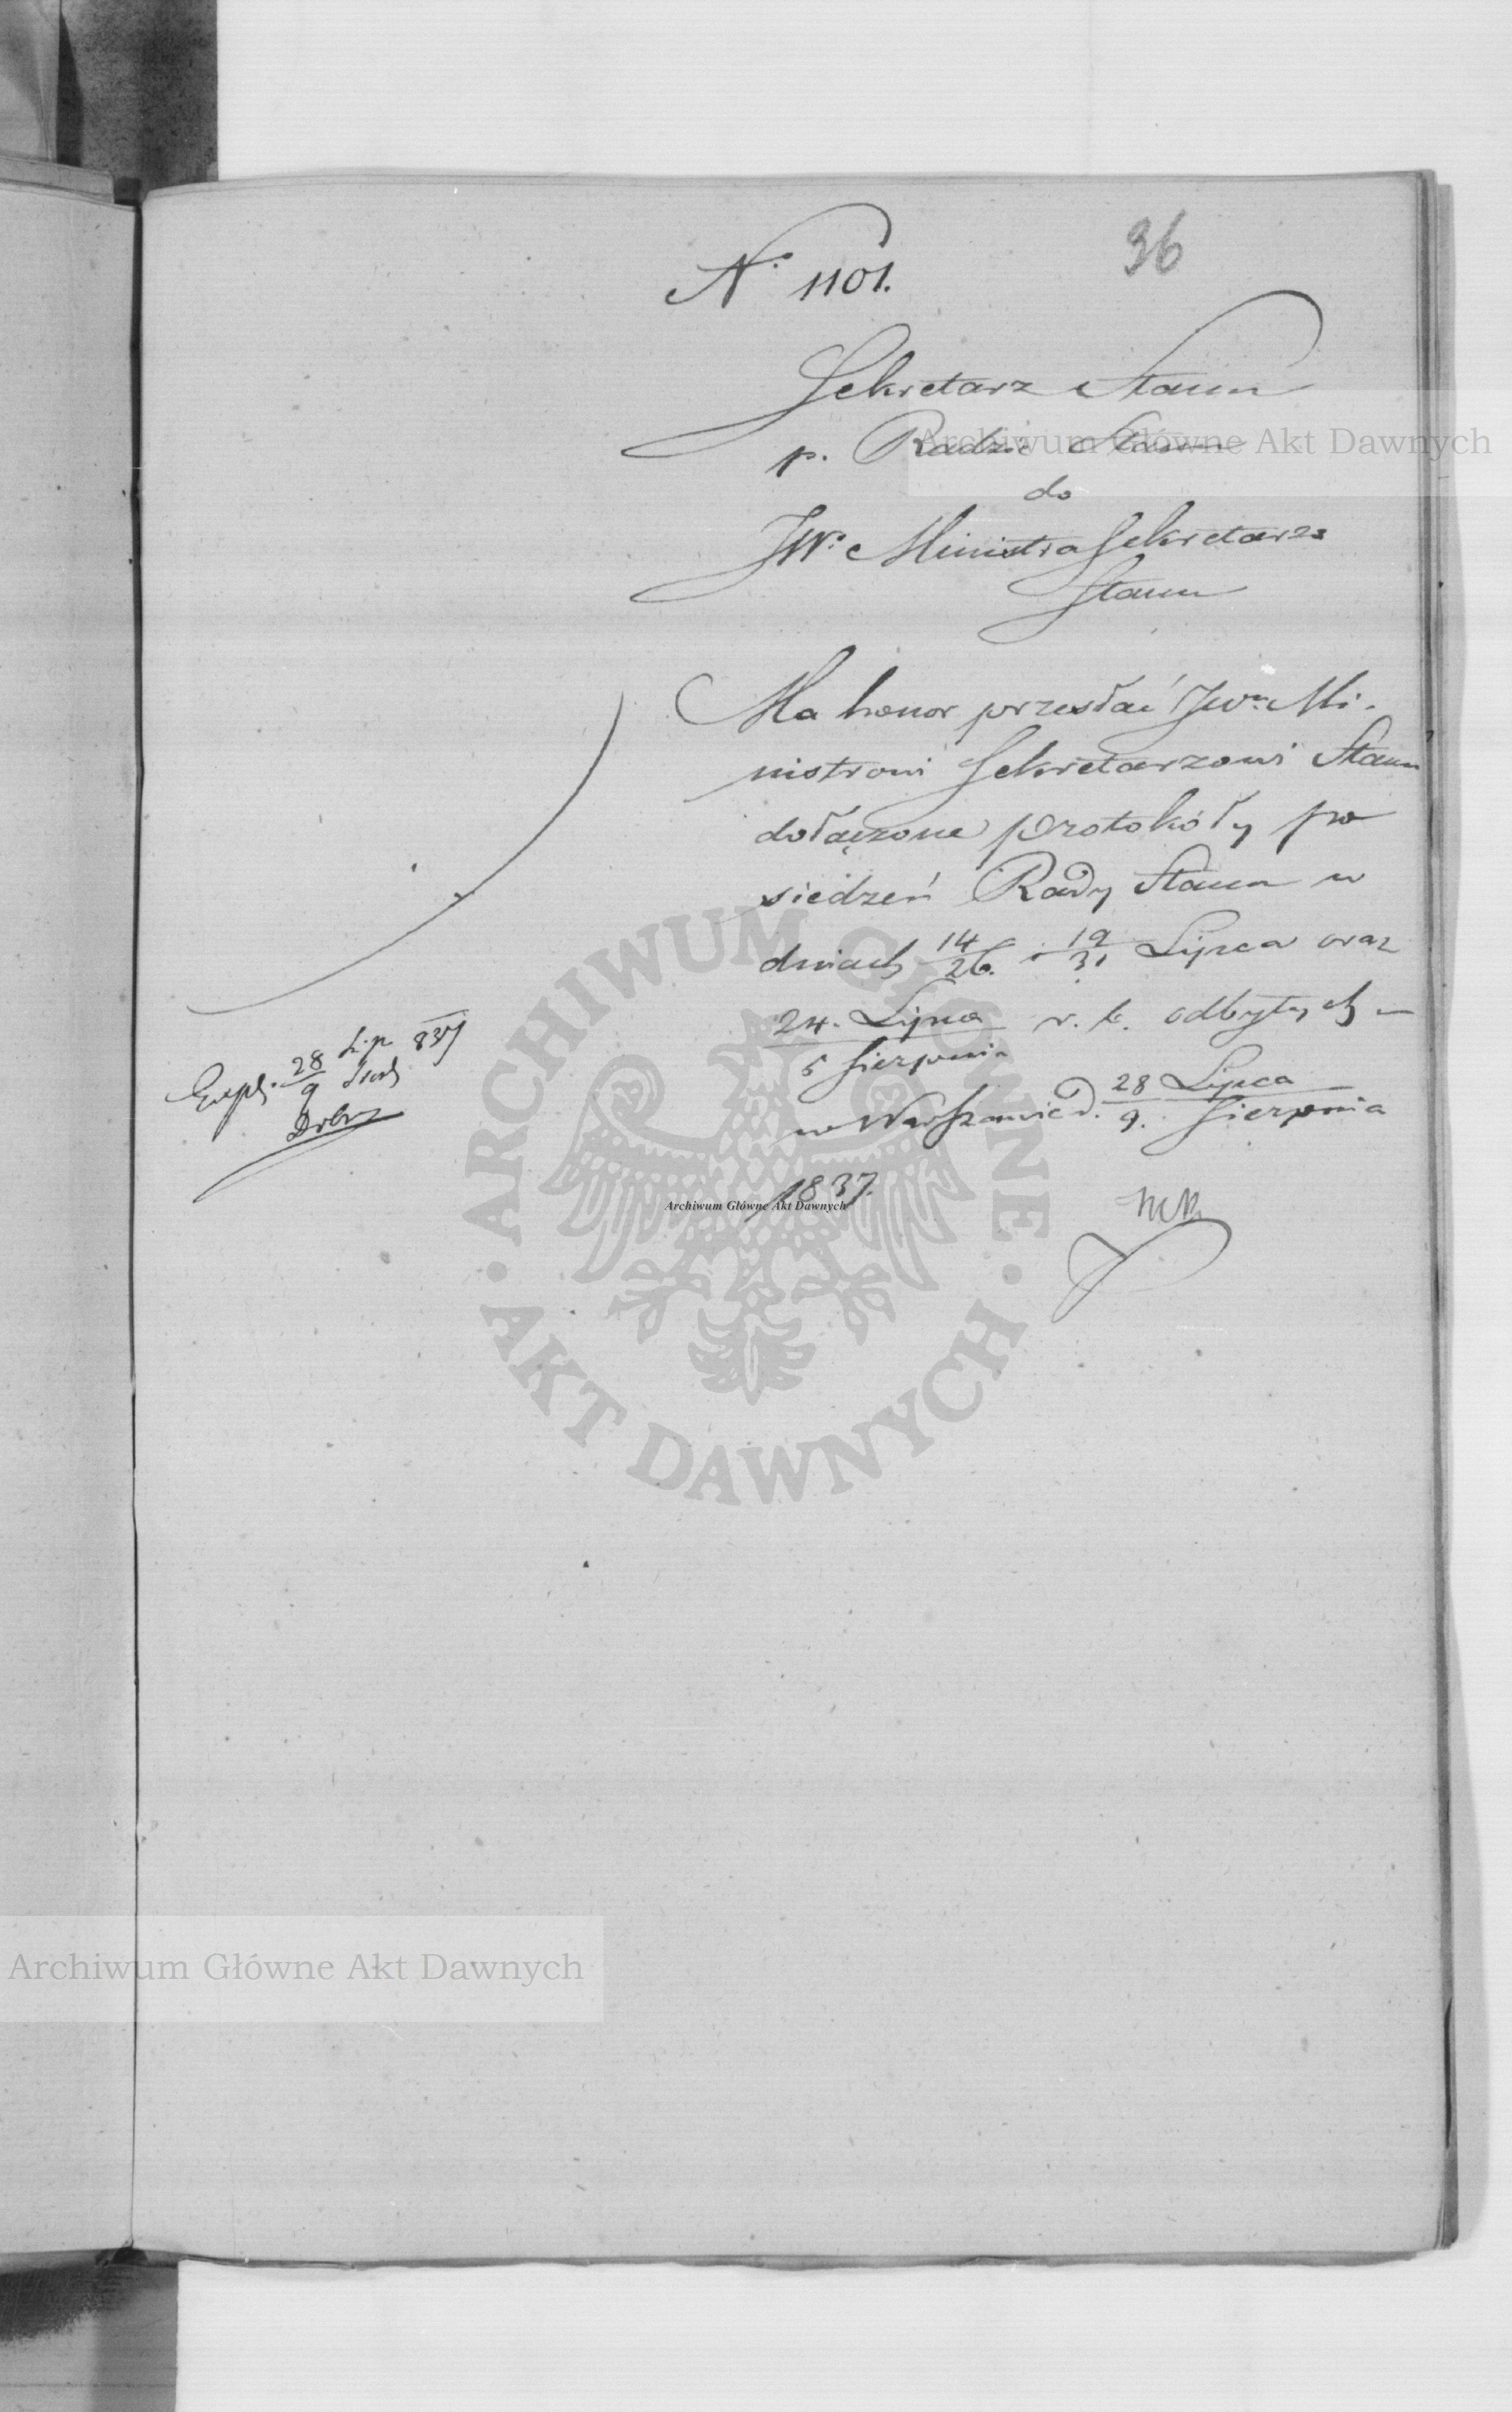 36
N. 1101.
Sekretarz Stanu
p. Radzie Stanu
do
JW. Ministra Sekretarza
Stanu
Ma honor przesłać JWu. Mi-
nistrowi Sekretarzowi Stanu
dołączone protokóły po
siedzeń Rady Stanu w
dniach 14/26. i 19/31 Lipca oraz
24. Lipca / 5 Sierpnia r. b. odbytych –
w Warszawie d. 28 Lipca / 9. Sierpnia
1837.
Exped. 28/9 Lip 837
Archiwum Główne Akt Dawnych
Archiwum Główne Akt Dawnych
Archiwum Główne Akt Dawnych
ARCHIWUM GŁÓWNE AKT DAWNYCH